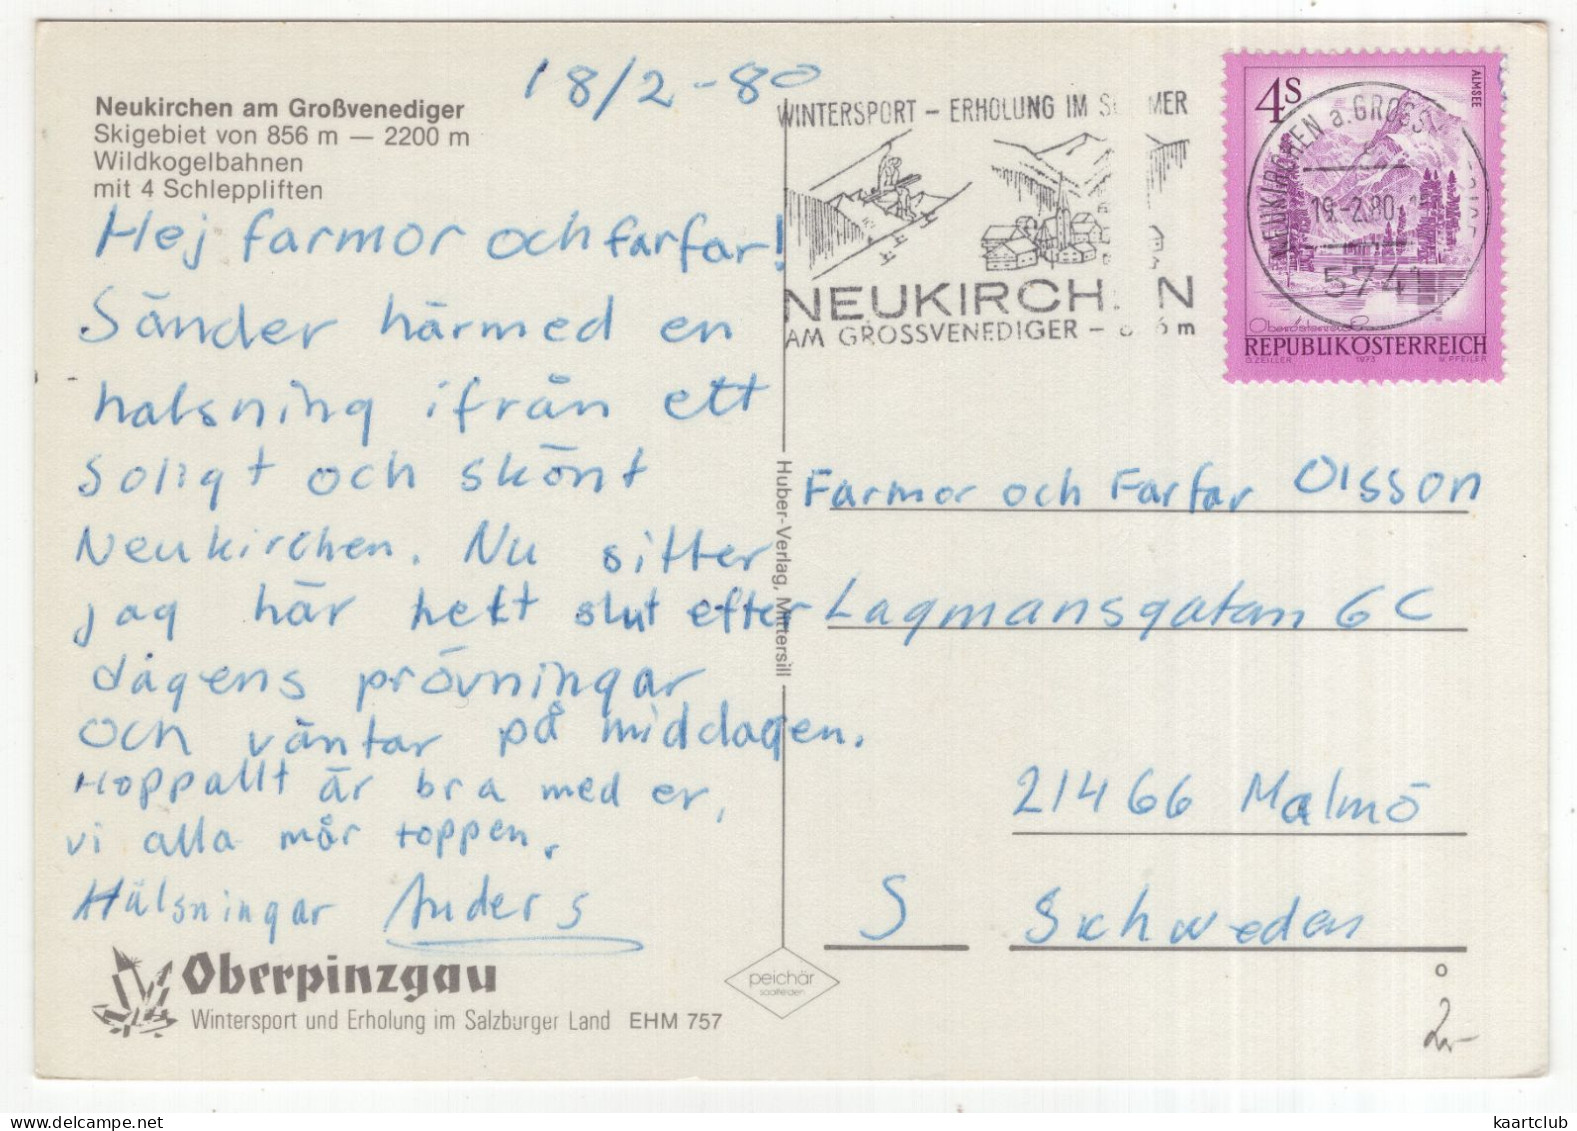 18/2-80
Neukirchen am Großvenediger
Skigebiet von 856 m — 2200 m
Wildkogelbahnen
mit 4 Schleppliften
Hej farmor och farfar!
Sänder härmed en
halsning ifrån ett
soligt och skönt
Neukirchen. Nu sitter
jag här helt slut efter
dagens prövningar
och väntar på middagen.
Hoppallt är bra med er,
vi alla mår toppen.
Hälsningar Anders
Oberpinzgau
Wintersport und Erholung im Salzburger Land EHM 757
Huber-Verlag, Mittersill
peichär
saalfelden
WINTERSPORT – ERHOLUNG IM S MER
NEUKIRCH N
AM GROSSVENEDIGER – 6 m
4S
ALMSEE
NEUKIRCHEN a. GROSS
19.-2.80
5741
Oberösterreich
REPUBLIK ÖSTERREICH
O.ZEILLER 1973 W.PFEILER
Farmor och Farfar Olsson
Lagmansgatan 6C
21466 Malmö
S Schweden
2,-
kaartclub